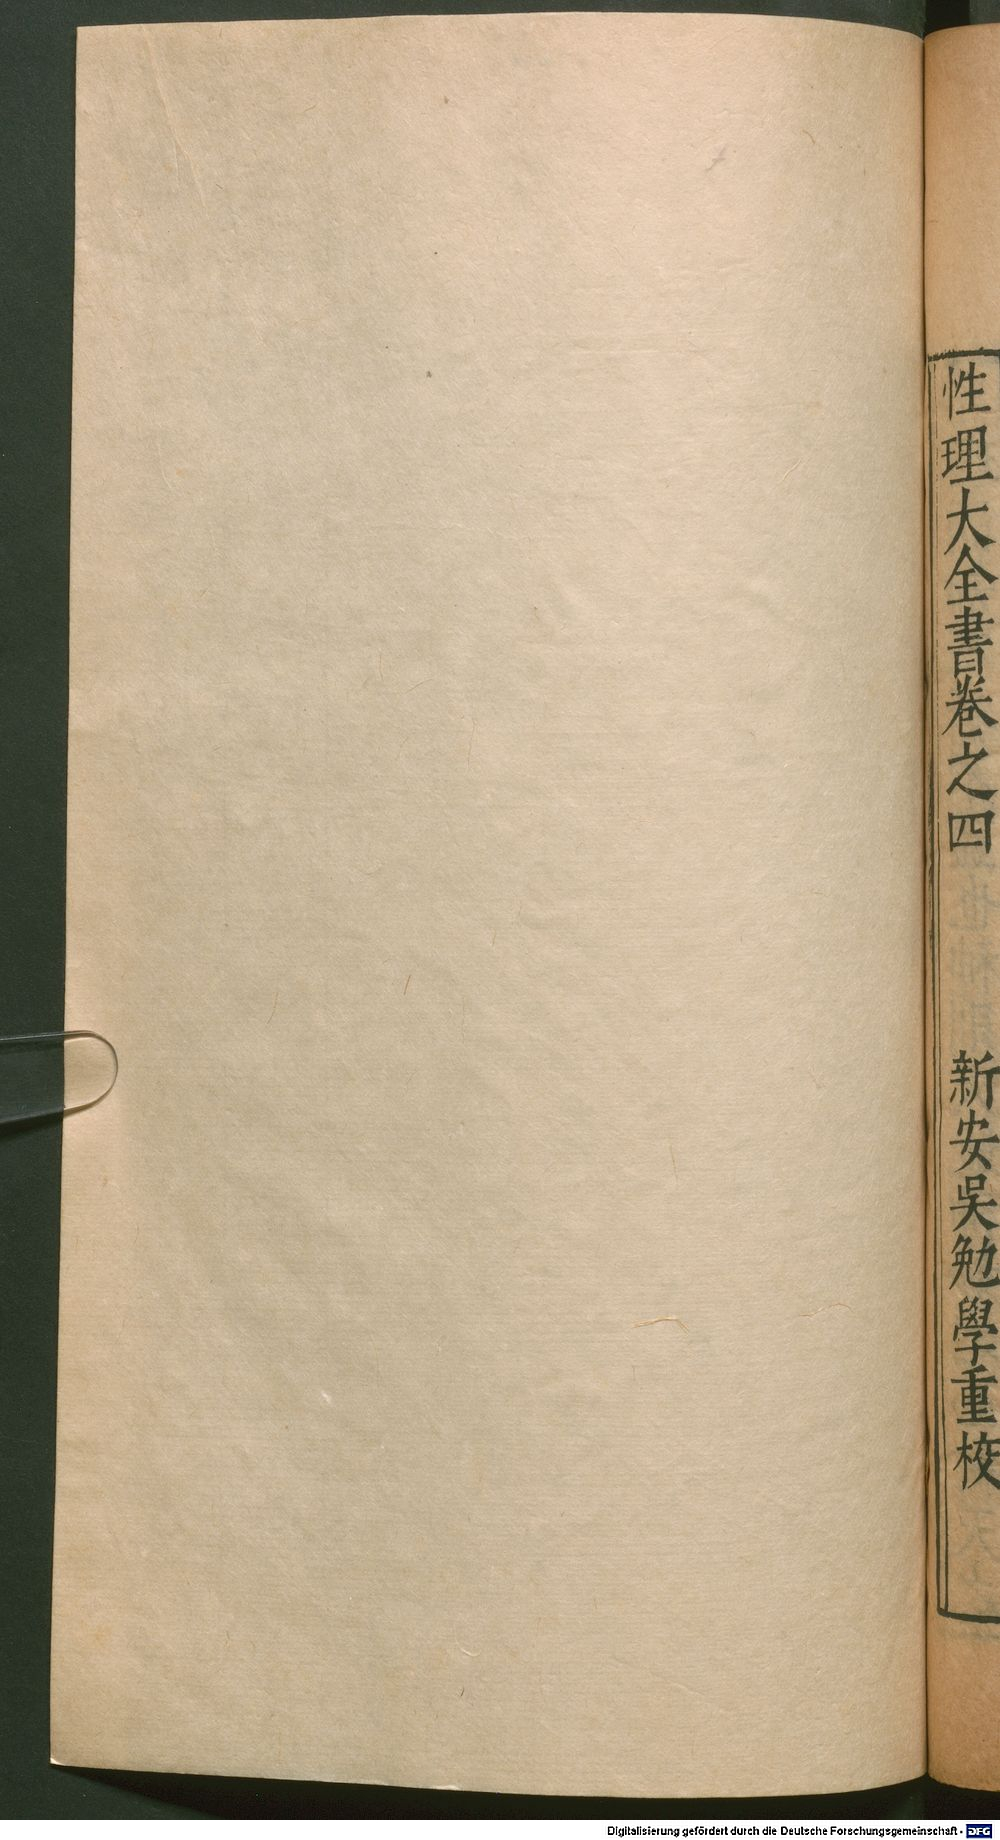 性理大全書卷之四
新安吳勉學重校
Digitalisierung gefördert durch die Deutsche Forschungsgemeinschaft - DFG